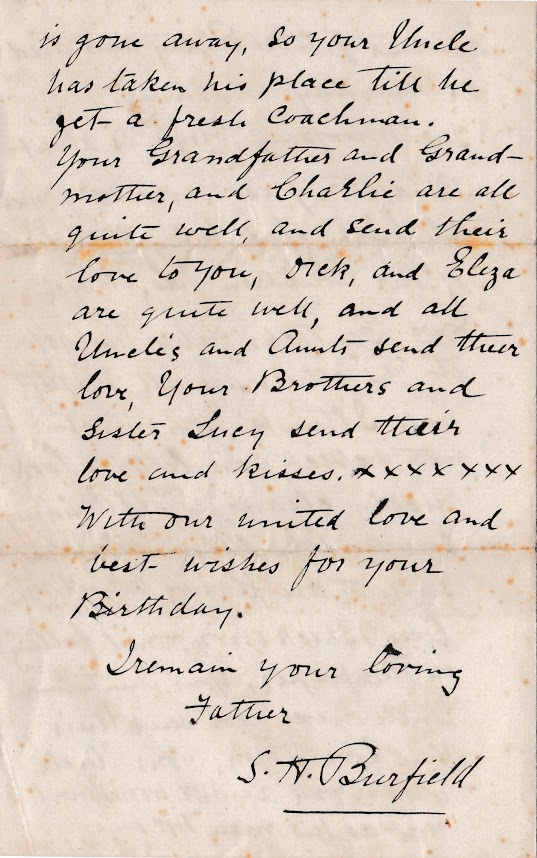 is gone away, so your Uncle
has taken his place till he
get a fresh Coachman.
Your Grandfather and Grand-
mother, and Charlie are all
quite well, and send their
love to you, Dick, and Eliza
are quite well, and all
Uncle's and Aunts send their
love, Your Brothers and
Sister Lucy send their
love and kisses. xxxxxxx
With our united love and
best wishes for your
Birthday.
I remain your loving
Father
S. H. Burfield